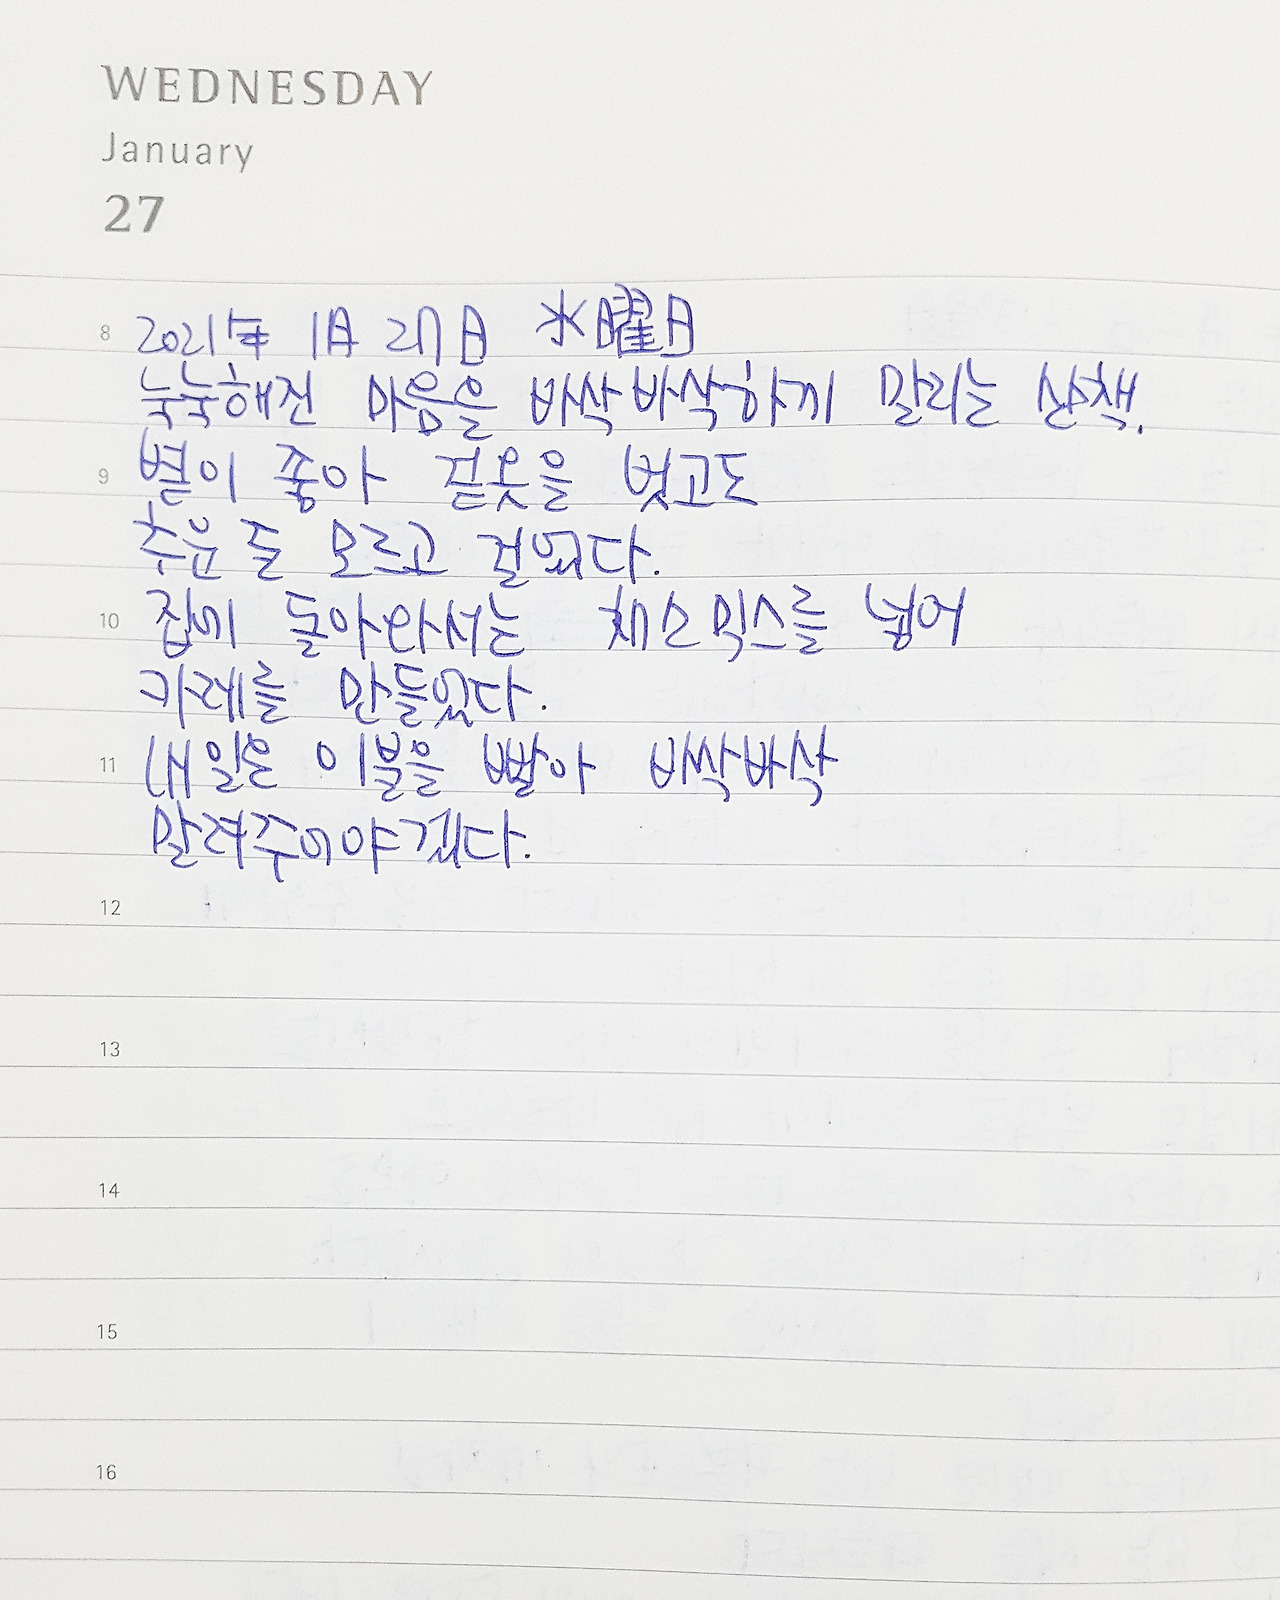 WEDNESDAY
January
27
8 2021年 1月 27日 水曜日
눅눅해진 마음을 바삭바삭하게 말리는 산책.
9 볕이 좋아 겉옷을 벗고도
추운 줄 모르고 걸었다.
10 집에 돌아와서는 채소믹스를 넣어
카레를 만들었다.
11 내일은 이불을 빨아 바싹바삭
말려주어야겠다.
12
13
14
15
16